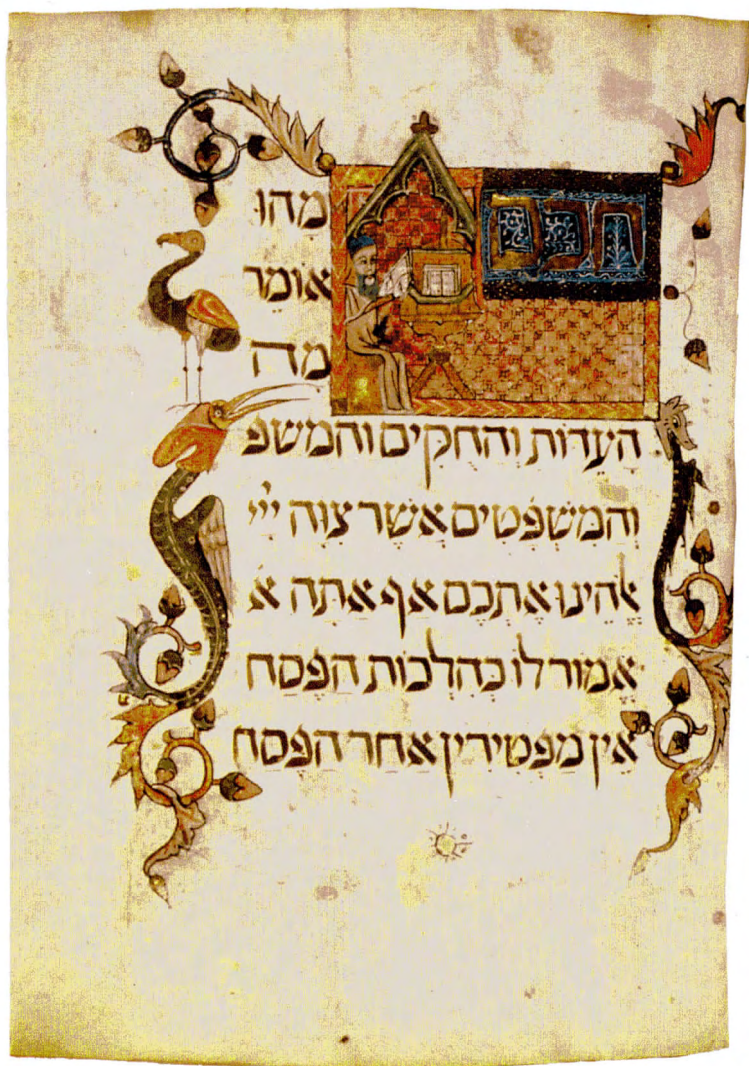 חכם
מהו
אומר
מה
העדות והחקים והמשפ
והמשפטים אשר צוה ייי
אלהינו אתכם אף אתה א
אמור לו כהלכות הפסח
אין מפטירין אחר הפסח